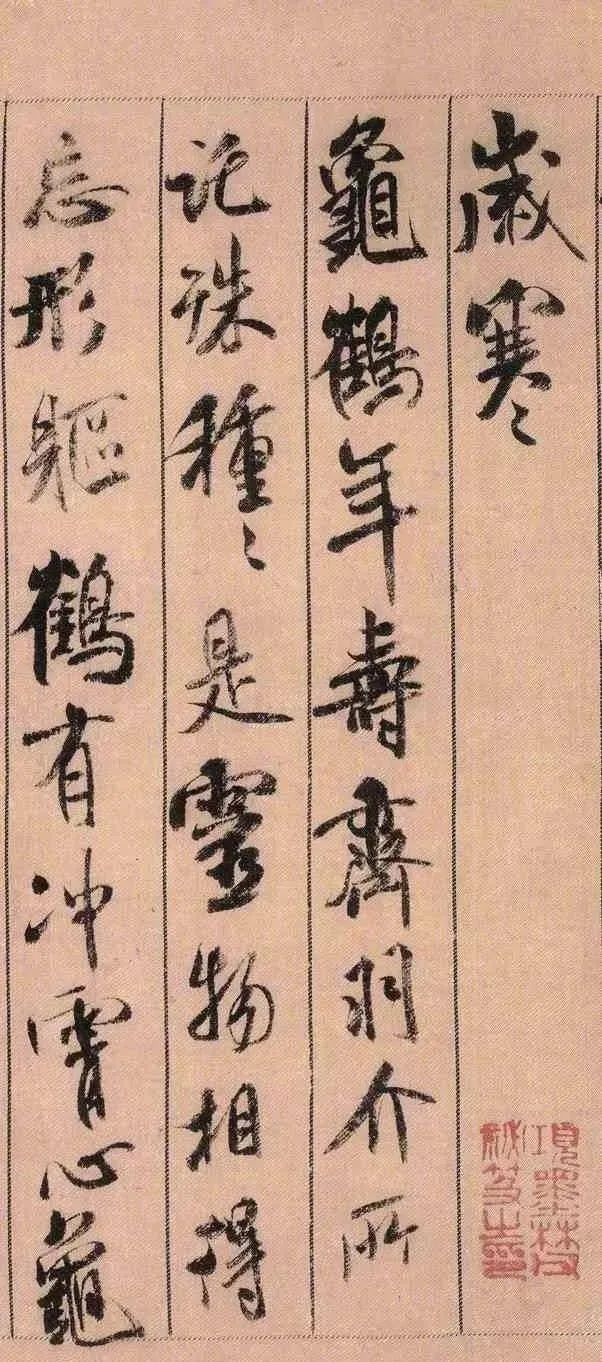 歲寒
龜鶴年壽齊羽介所
託殊種〻是靈物相得
忘形軀鶴有冲霄心龜
項墨林父
祕笈之印